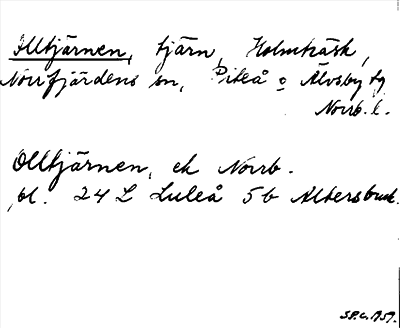 Olltjärnen, tjärn, Holmträsk,
Norrfjärdens sn, Piteå o Älvsby tg
Norrb. l.
Olltjärnen, ek Norrb.
bl. 24 L Luleå 5b Altersbruk.
S.P.C. 1959.